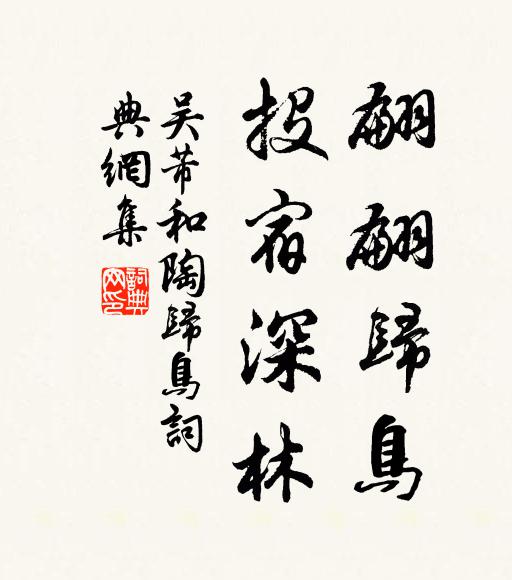 翩翩歸鳥
投宿深林
吴芾和陶歸鳥詞
典網集
詞典網印